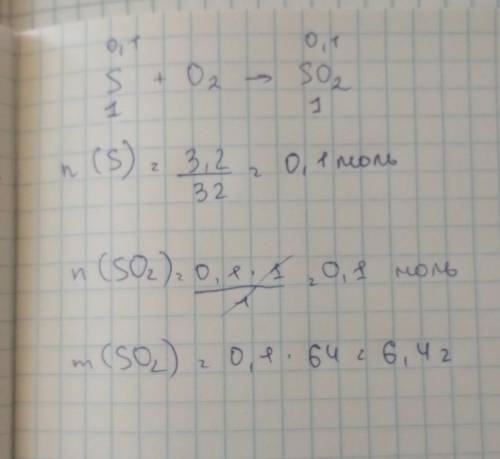 0,1 0,1
S + O₂ → SO₂
1 1
n (S) = 3,2/32 = 0,1 моль
n (SO₂) = 0,1 · 1/1 = 0,1 моль
m (SO₂) = 0,1 · 64 = 6,4 г